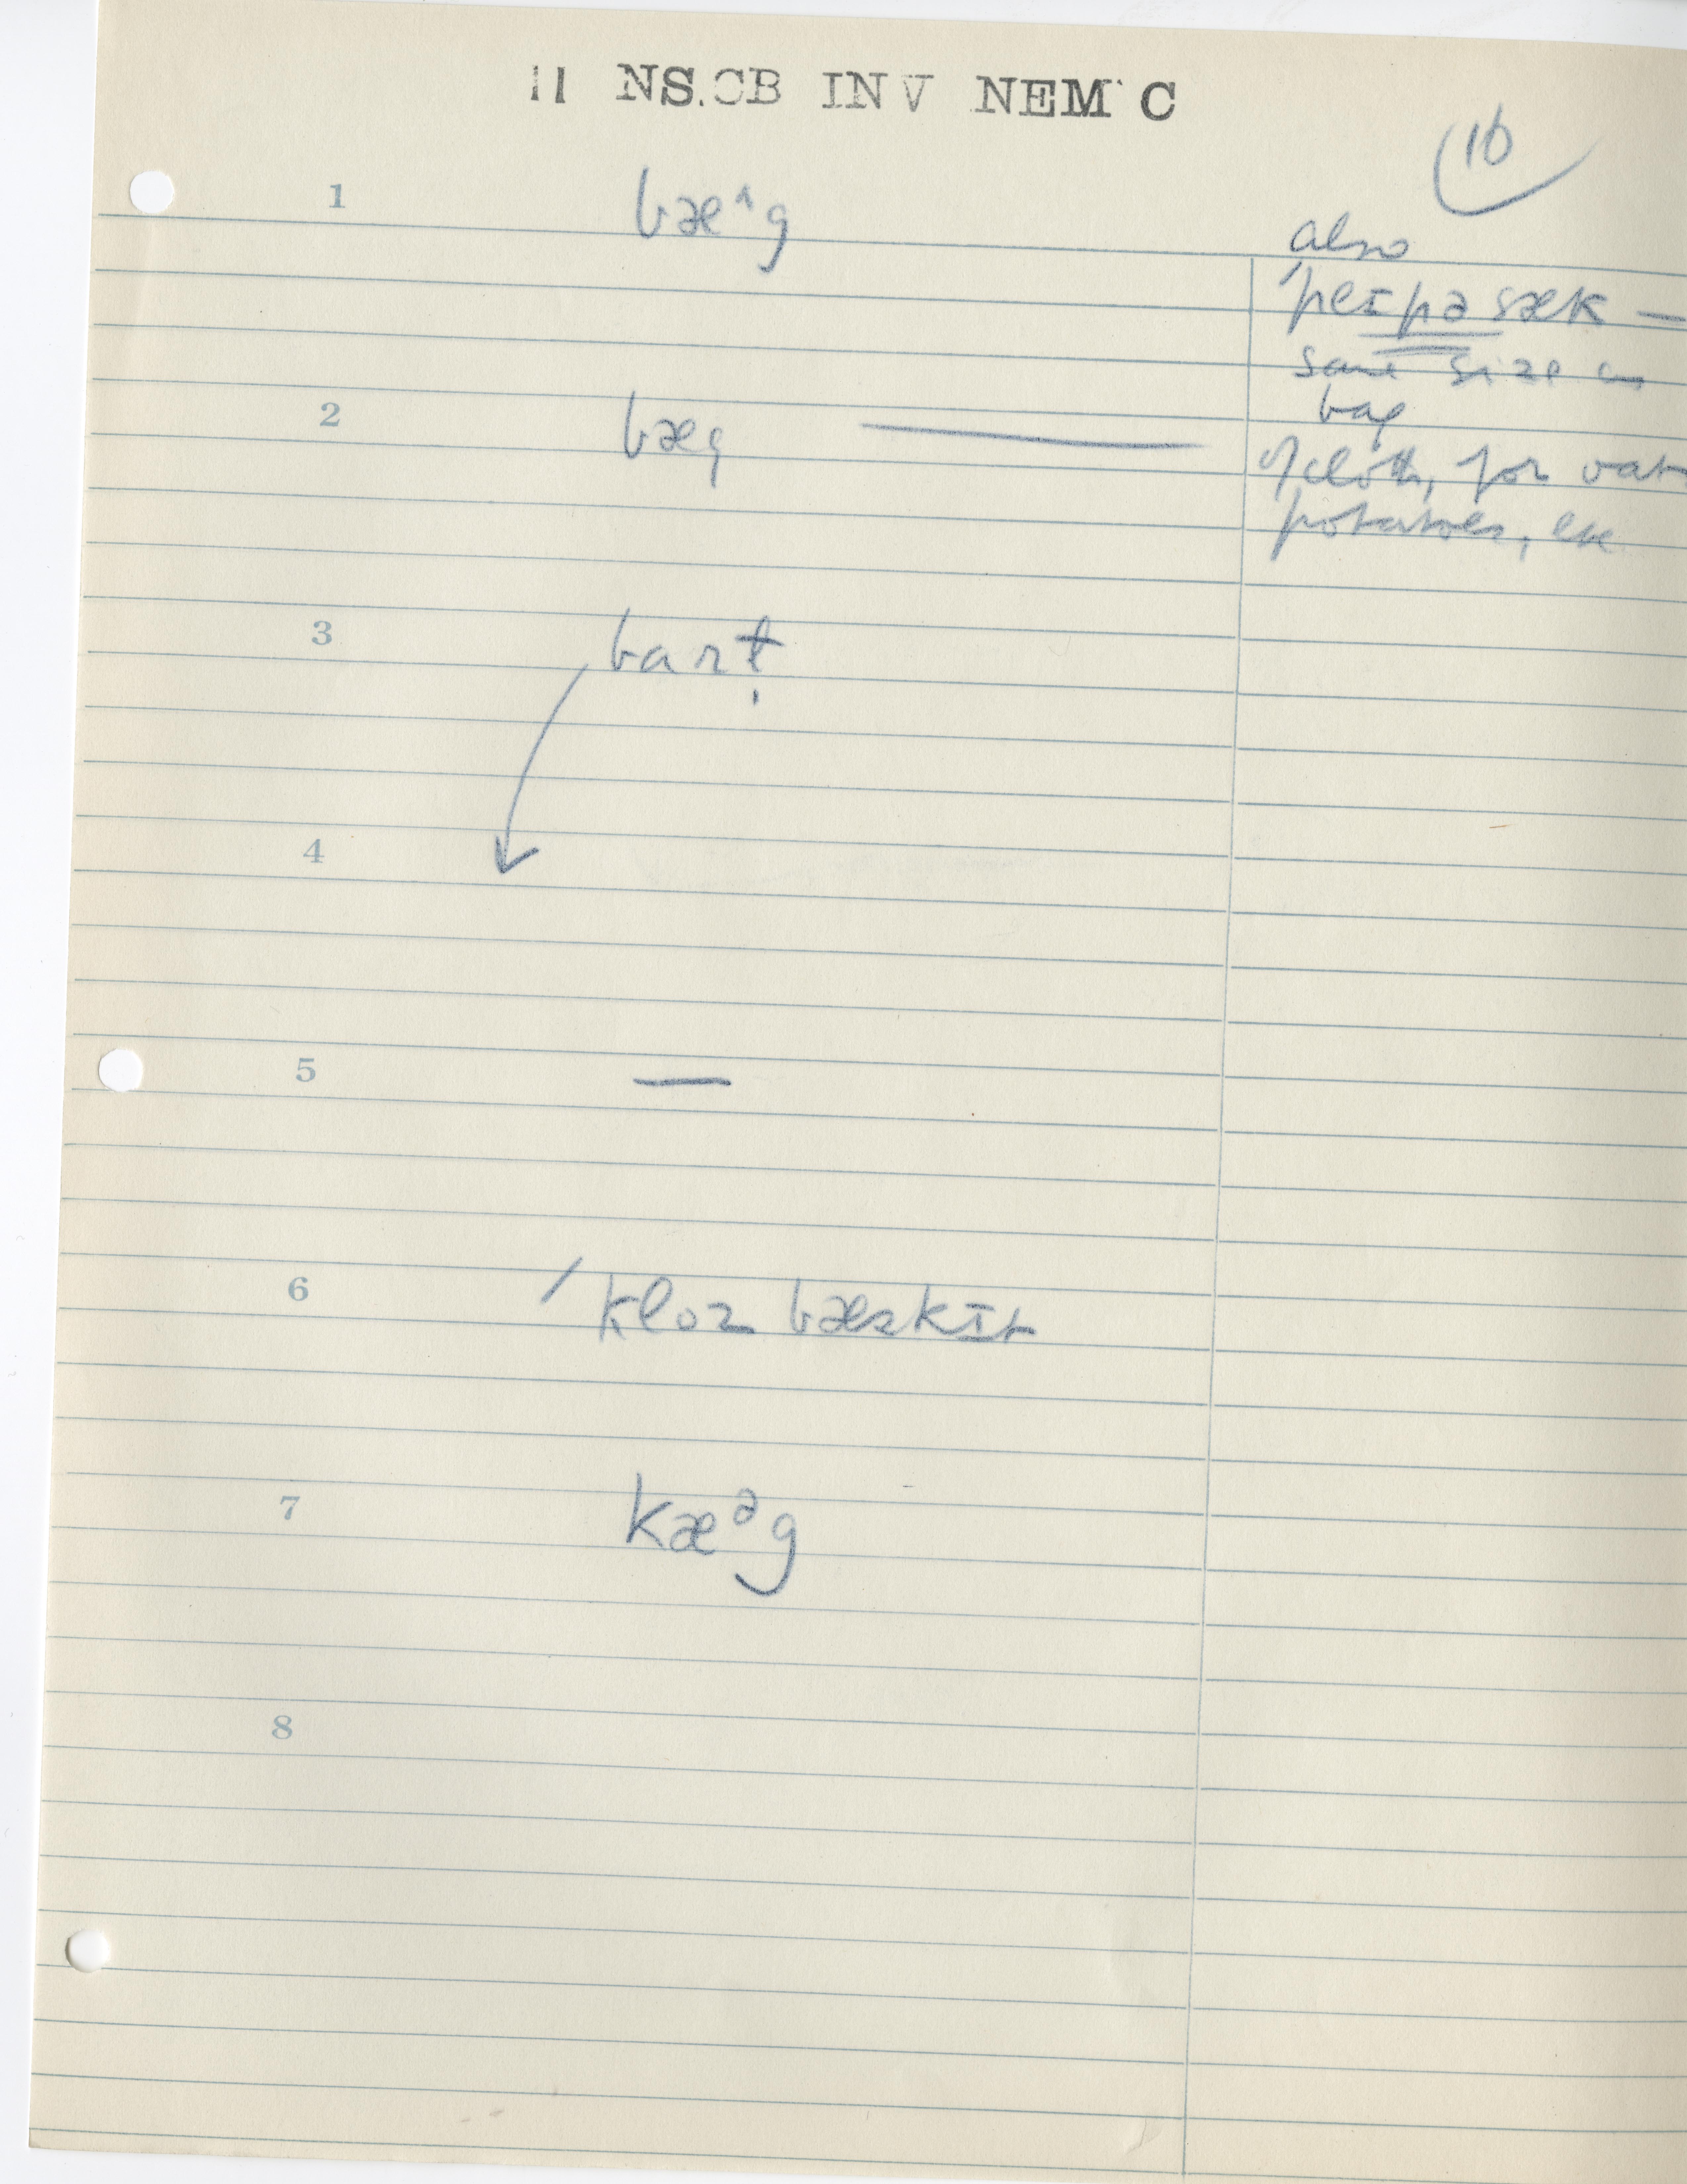 11 NS.CB INV NEM C
16
1 bæ^g
also
'peɪpə sæk —
same size as
bag
2 bæg ——
of cloth, for oats
potatoes, etc
3 barṭ
4
5 —
6 'kloz bæskɪt
7 kæᵊg
8